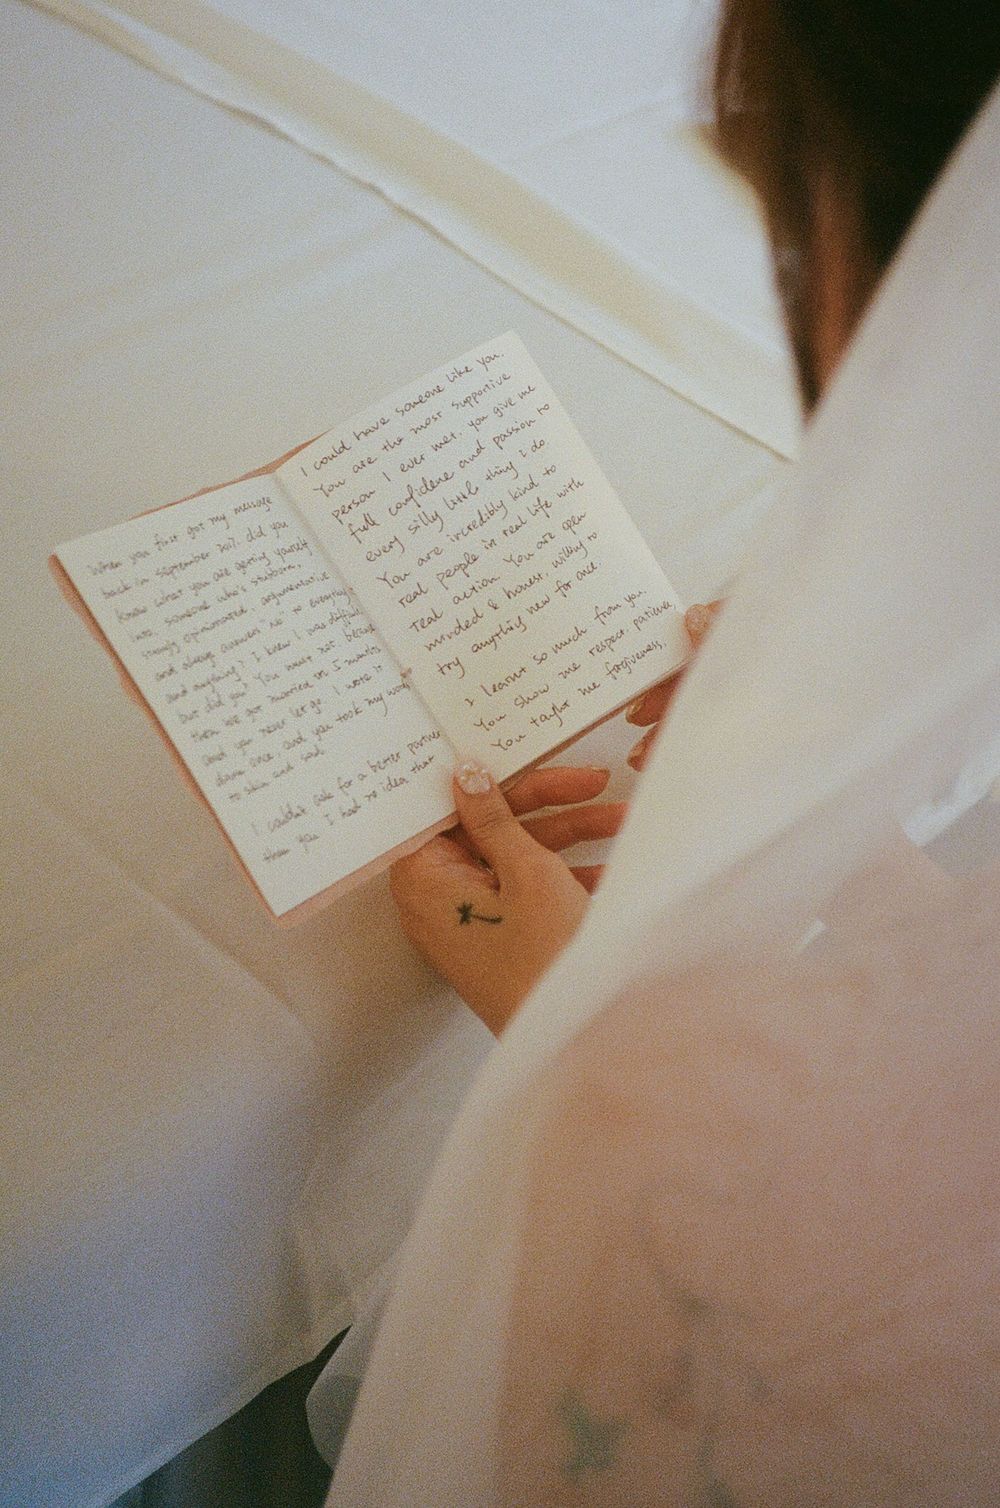 When you first got my message
back in September 2017, did you
know what you are getting yourself
into, someone who's stubborn,
strongly opinionated, argumentative
and always answers "no" to everything
and anything? I knew I was difficult
but did you? You must not because
then we got married in 5 months
and you never let go. I wrote it
down once, and you took my words
to skin and soul.
I couldn't ask for a better partner
than you. I had no idea that
I could have someone like you.
You are the most supportive
person I ever met. you give me
full confidence and passion to
every silly little thing I do.
You are incredibly kind to
real people in real life with
real action. You are open
minded & honest, willing to
try anything new for once.
I learnt so much from you
You show me respect, patience,
You taught me forgiveness,